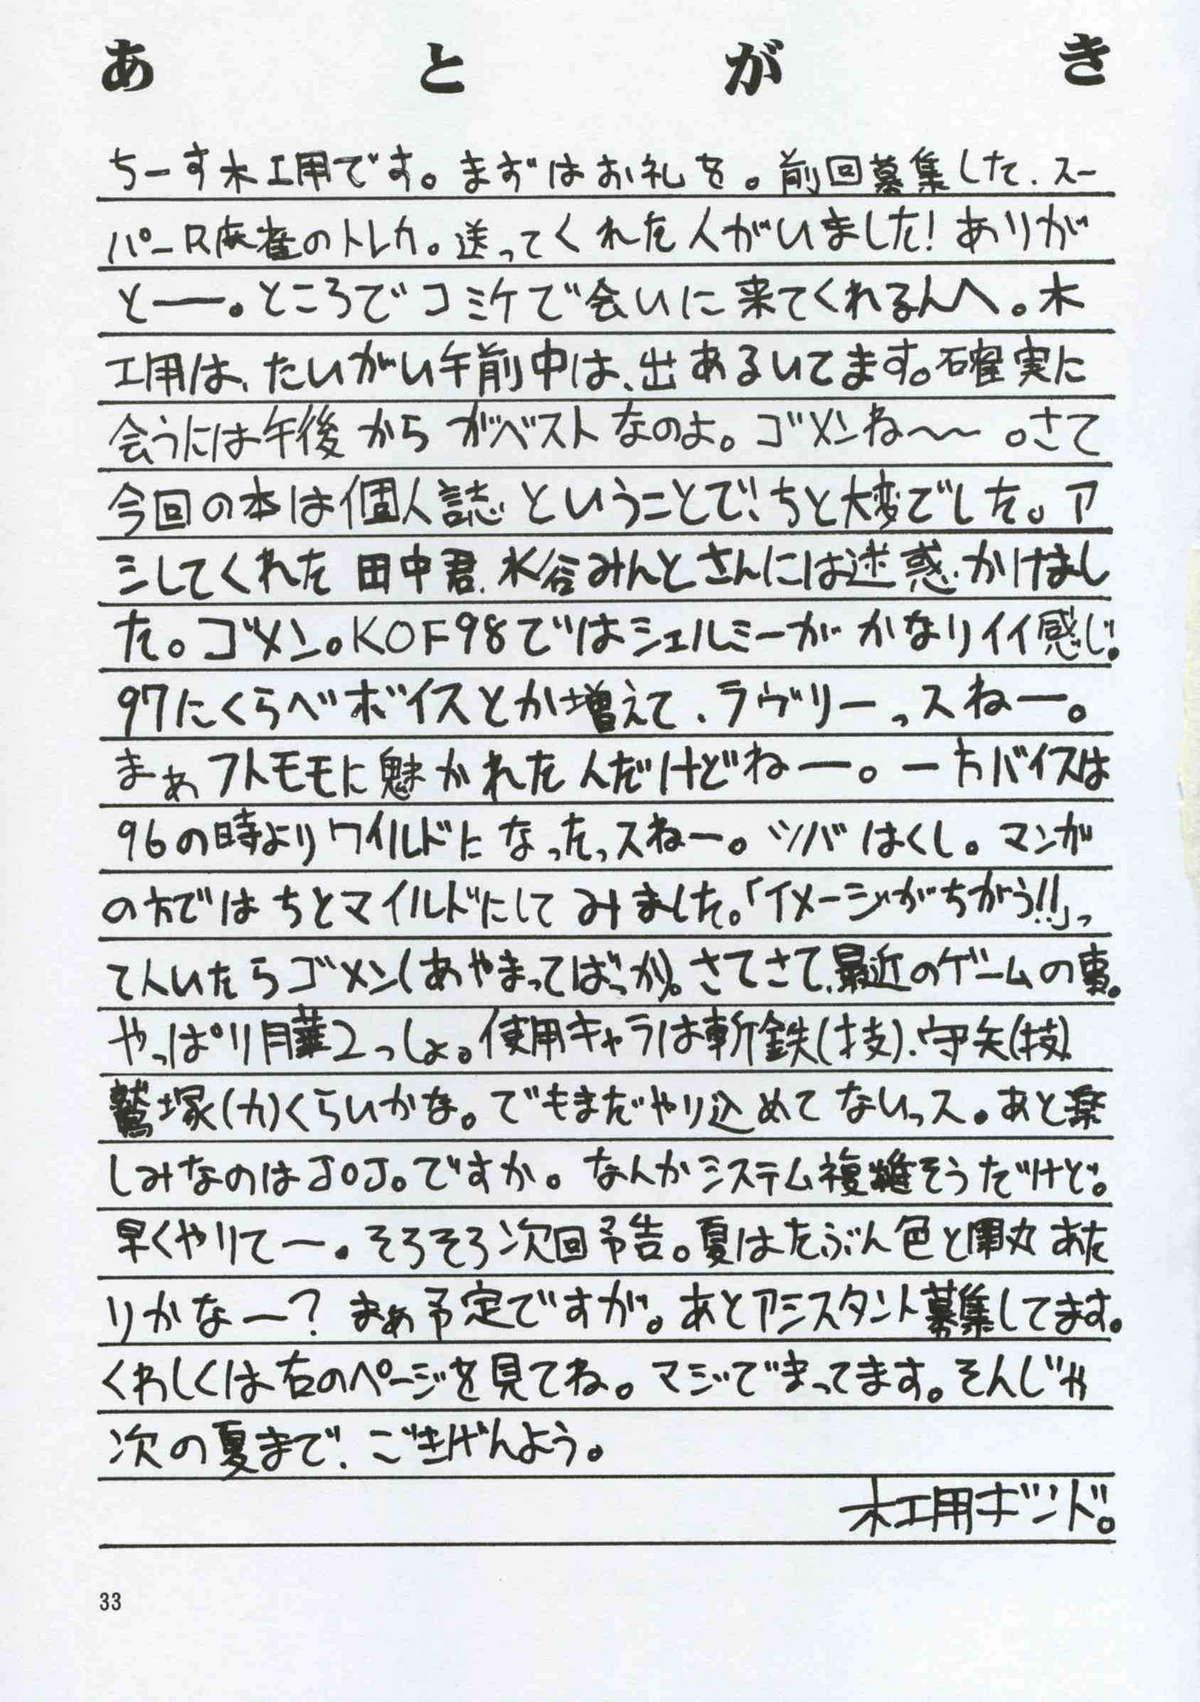 あとがき
ちーす木工用です。まずはお礼を。前回募集した、スー
パーR麻雀のトレカ。送ってくれた人がいました！ありが
とーー。ところでコミケで会いに来てくれるんへ。木
工用は、たいがい午前中は、出あるいてます。確実に
会うには午後からがベストなのよ。ゴメンね〜〜。さて
今回の本は個人誌ということで、ちと大変でした。ア
シしてくれた田中君、水谷みんとさんには迷惑かけまし
た。ゴメン。KOF98ではシェルミーがかなりイイ感じ。
97にくらべボイスとか増えて、ラヴリーっスねー。
まぁフトモモに魅かれた人だけどねー。一方バイスは
96の時よりワイルドになったっスねー。ツバはくし。マンガ
の方ではちとマイルドにしてみました。「イメージがちがう!!」っ
て人いたらゴメン(あやまってばっか)。さてさて、最近のゲームの事。
やっぱり月華2っしょ。使用キャラは斬鉄(技)、守矢(技)
鷲塚(力)くらいかな。でもまだやり込めてないっス。あと楽
しみなのはJOJO。ですか。なんかシステム複雑そうだけど。
早くやりてー。そろそろ次回予告。夏はたぶん色と閑丸あた
りかなー？まぁ予定ですが。あとアシスタント募集してます。
くわしくは右のページを見てね。マジでまってます。そんじゃ
次の夏まで、ごきげんよう。
木工用ボンド。
33